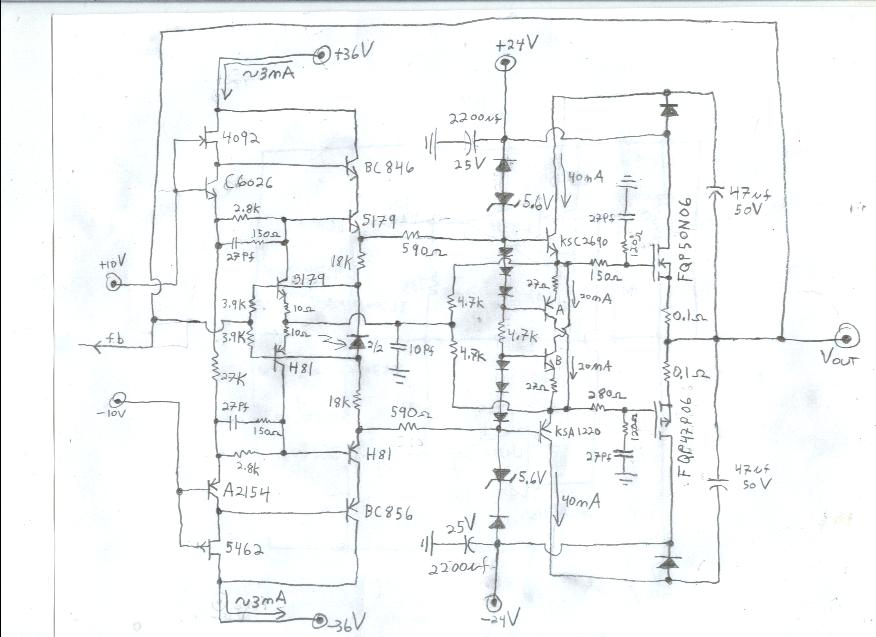 +36V
~3mA
+24V
4092
2200uf
25V
BC846
40mA
C6026
5.6V
47uf
50V
2.8K
5179
27Pf
120Ω
FQP50N06
150Ω
27Pf
590Ω
KSC2690
18K
150Ω
+10V
5179
27Ω
20mA
3.9K
10Ω
4.7K
A
0.1Ω
fb
3.9K
10Ω
2/2
10Pf
4.7K
4.7K
B
20mA
Vout
H81
0.1Ω
27K
27Ω
280Ω
-10V
27Pf
18K
590Ω
150Ω
KSA1220
120Ω
27Pf
FQP47P06
2.8K
H81
5.6V
47uf
50V
A2154
40mA
BC856
25V
5462
2200uf
~3mA
-36V
-24V